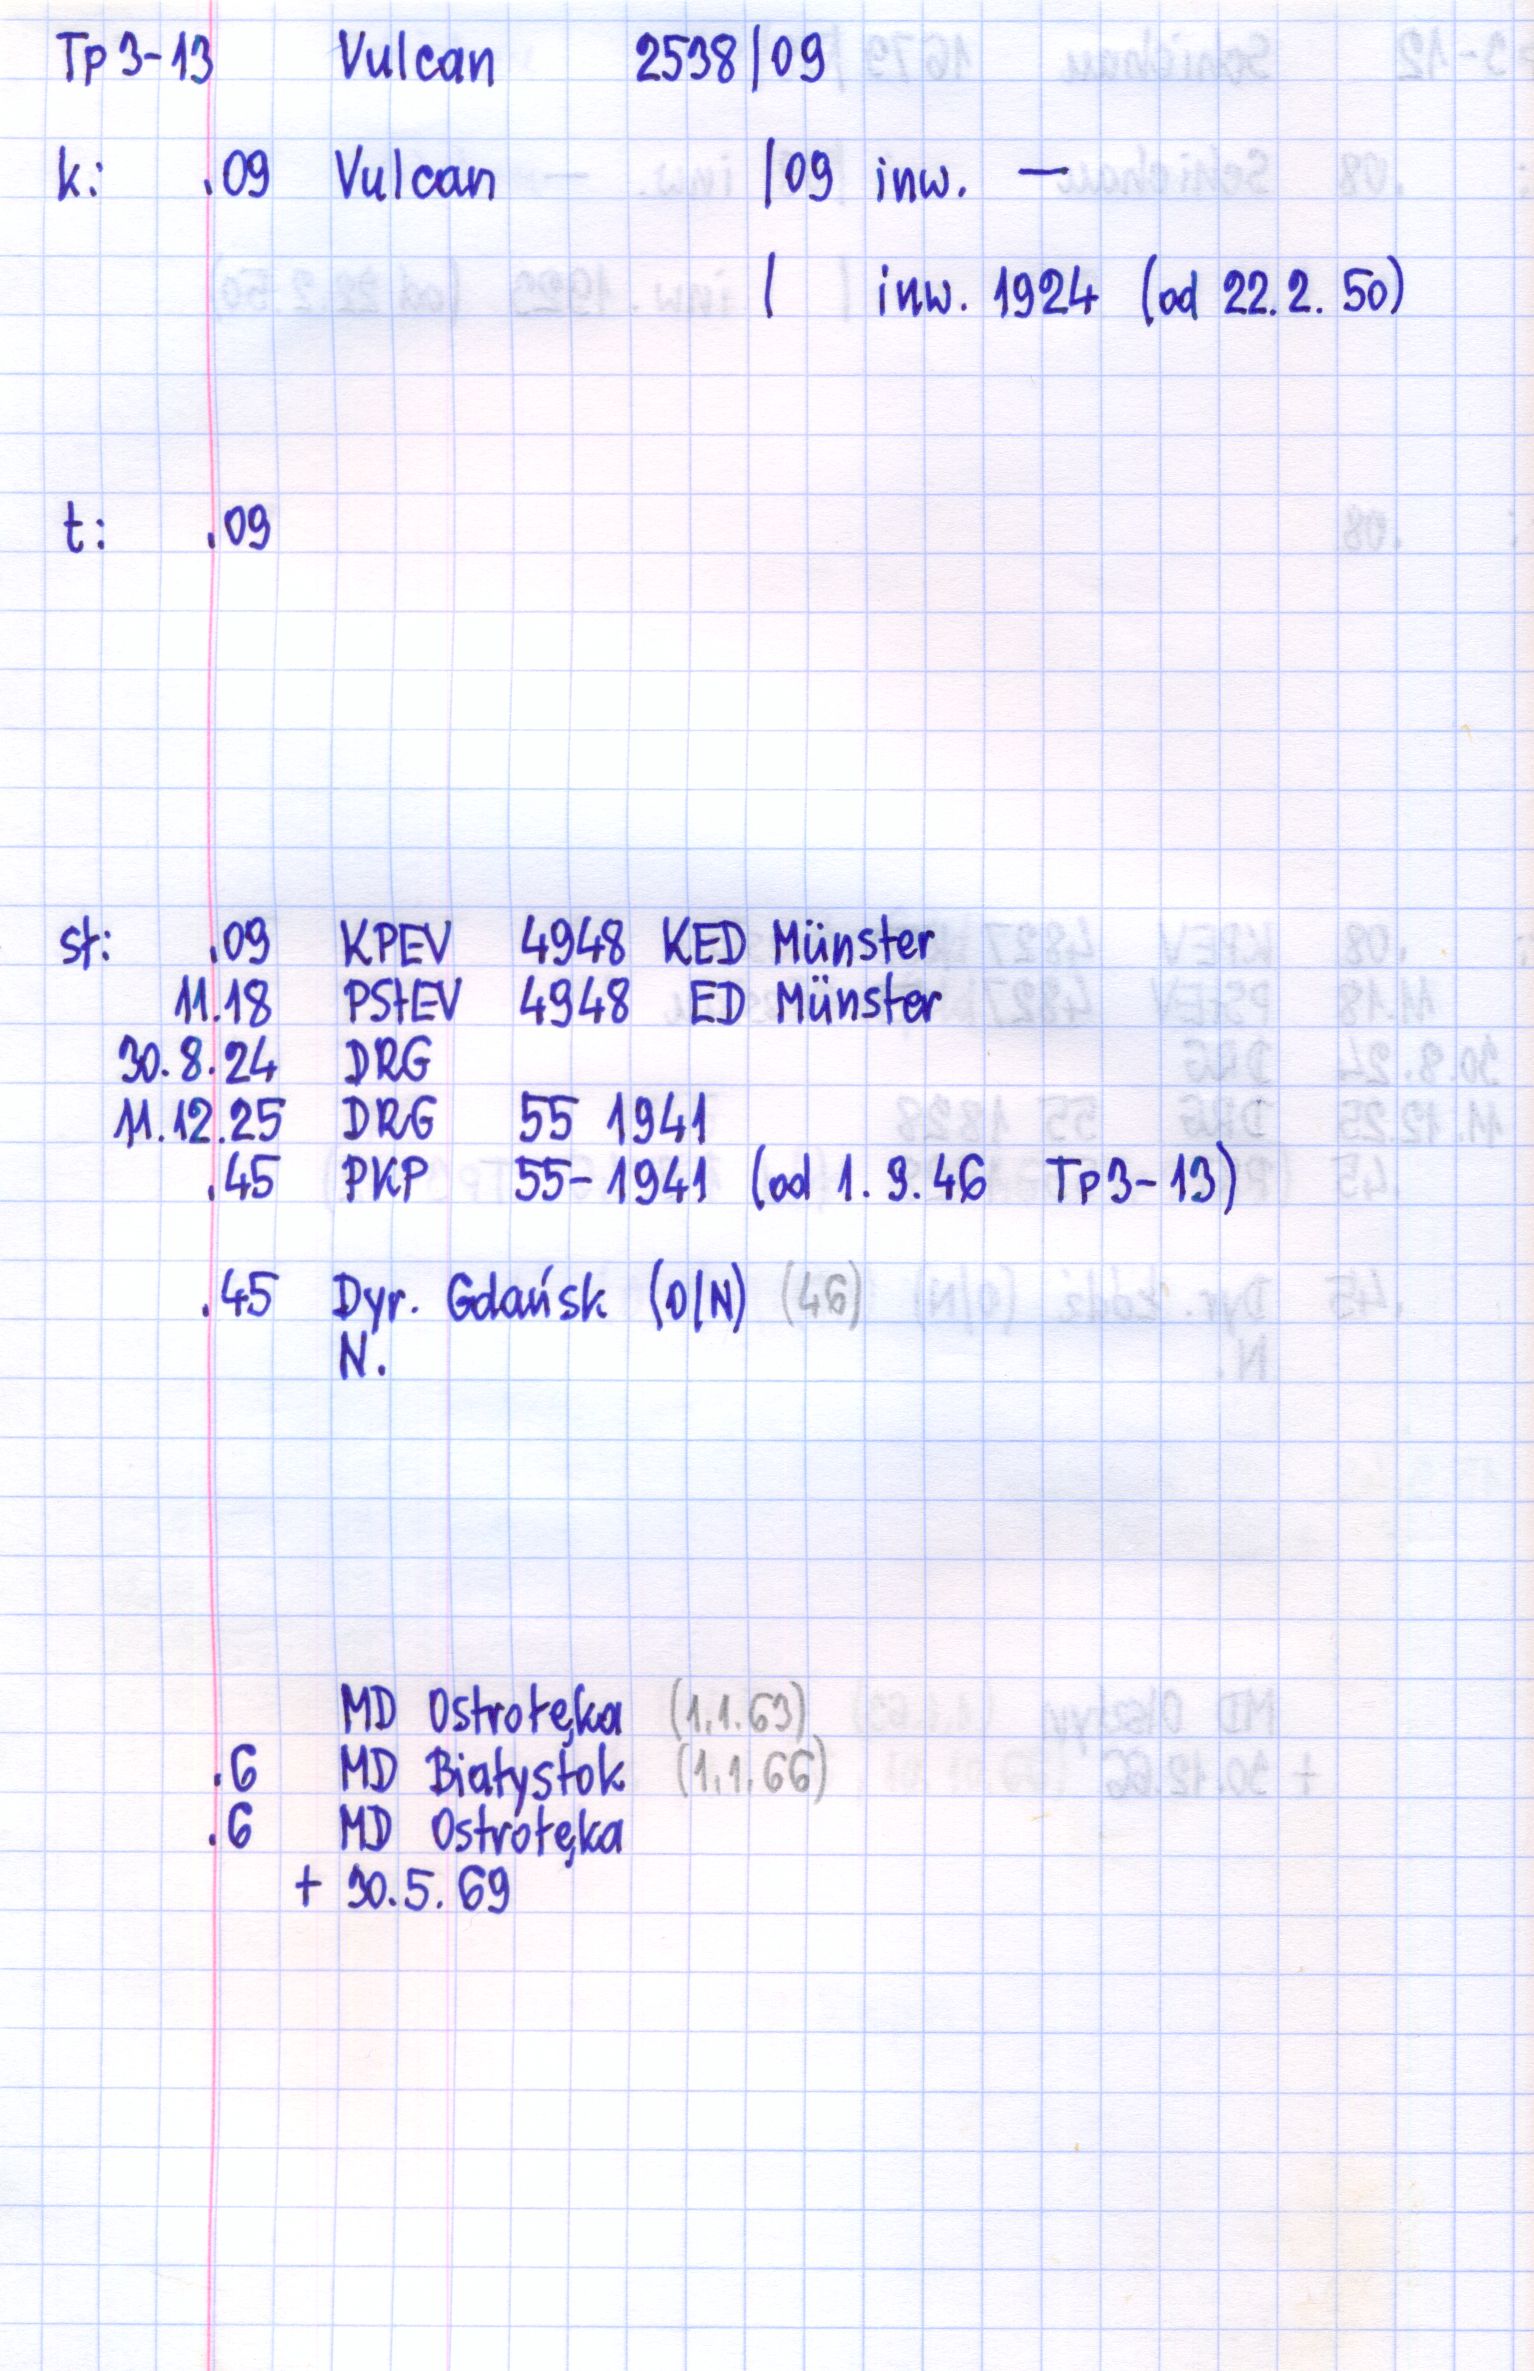 Tp3-13 Vulcan 2538/09
k: .09 Vulcan /09 inw. —
/ inw. 1924 (od 22.2.50)
t: .09
st: .09 KPEV 4948 KED Münster
11.18 PStEV 4948 ED Münster
30.8.24 DRG
11.12.25 DRG 55 1941
.45 PKP 55-1941 (od 1.9.46 Tp3-13)
.45 Dyr. Gdańsk (O/N) (46)
N.
MD Ostrołęka (1.1.63)
.6 MD Białystok (1.1.66)
.6 MD Ostrołęka
+ 30.5.69